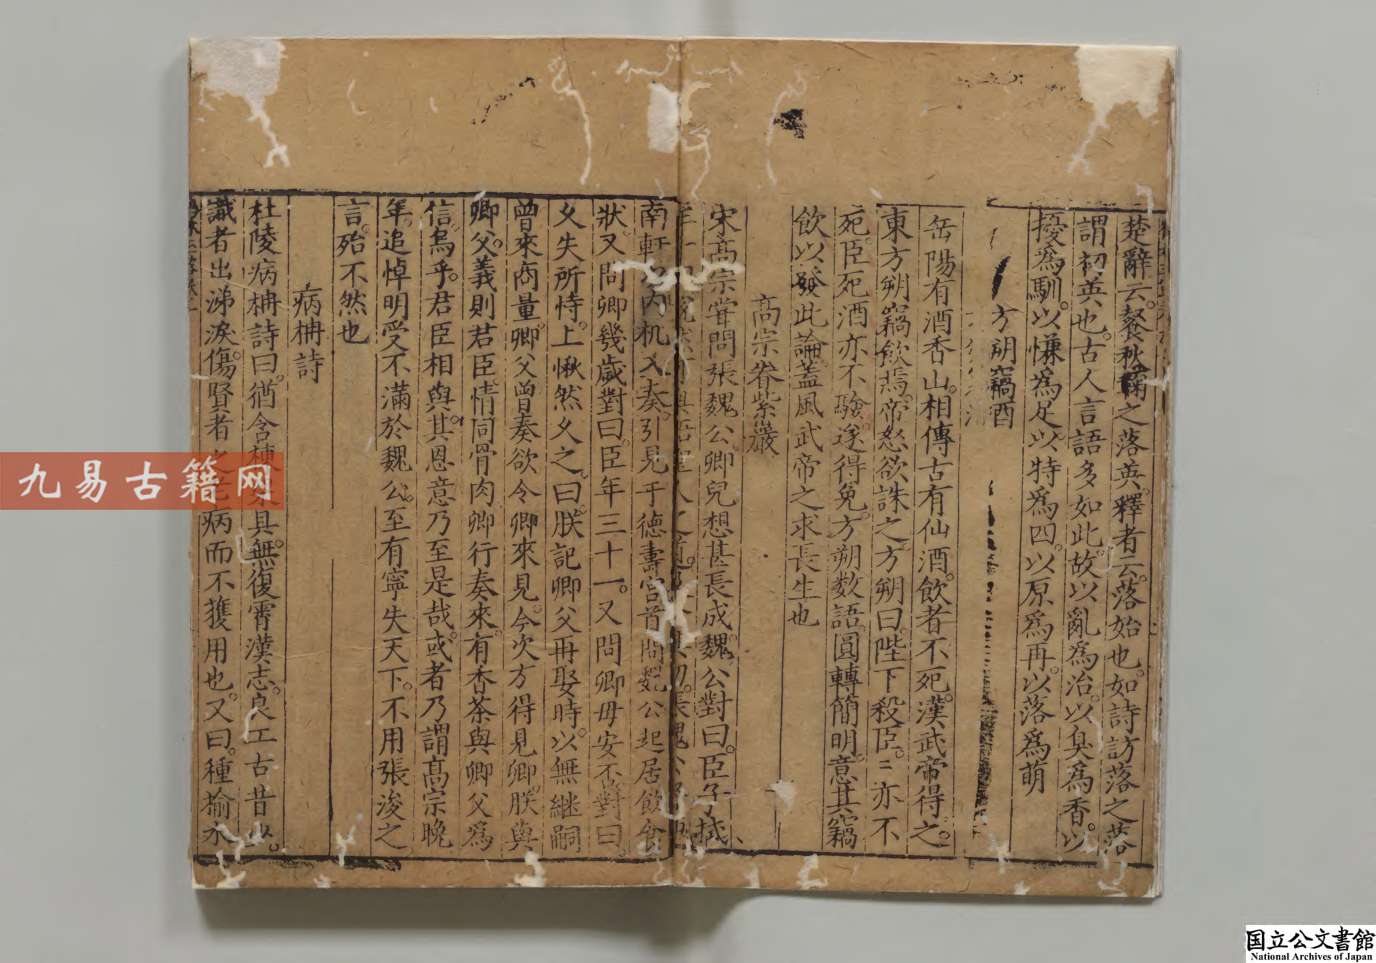 楚辭云。餐秋菊之落英。釋者云。落始也。如詩訪落之落
謂初英也。古人言語多如此。故以亂爲治。以臭爲香。以
擾爲馴。以慊爲足。以特爲四。以原爲再。以落爲萌
方朔竊酒
岳陽有酒香山。相傳古有仙酒。飲者不死。漢武帝得之。
東方朔竊飲焉。帝怒欲誅之。方朔曰。陛下殺臣。〻亦不
死。臣死酒亦不驗。遂得免。方朔數語。圓轉簡明。意其竊
飲以發此論。蓋風武帝之求長生也
高宗眷紫巖
宋高宗嘗問張魏公卿兒想甚長成。魏公對曰。臣子栻
南軒内机入奏。引見于德壽宮首問魏公起居飲食
狀。又問卿幾歲。對曰。臣年三十一。又問卿母安否。對曰。
久失所恃。上愀然久之。曰。朕記卿父再娶時。以無繼嗣
曾來商量。卿父曾奏欲令卿來見。今次方得見卿。朕與
卿父。義則君臣。情同骨肉。卿行奏來。有香茶與卿父爲
信。烏乎。君臣相與。其恩意乃至是哉。或者乃謂高宗晚
年。追悼明受。不滿於魏公。至有寧失天下。不用張浚之
言。殆不然也
病柟詩
杜陵病柟詩曰。猶含棟 具。無復霄漢志。良工古昔少。
識者出涕淚。傷賢者之 病而不獲用也。又曰。種榆水
九易古籍网
国立公文書館
National Archives of Japan